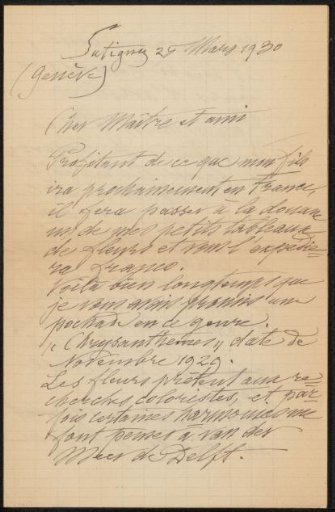 Satigny 29 Mars 1930
(Genève)
Cher Maître et ami
Profitant de ce que mon fils
ira prochainement en France,
il fera passer à la douane
un de mes petits tableaux
de fleurs et vous l'expédie-
ra franco.
Voilà bien longtemps que
je vous avais promis une
pochade en ce genre.
"Chrysanthèmes" date de
Novembre 1929.
Les fleurs prêtent aux re-
cherches coloristes, et par-
fois certaines harmonies me
font penser à van der
Meer de Delft.